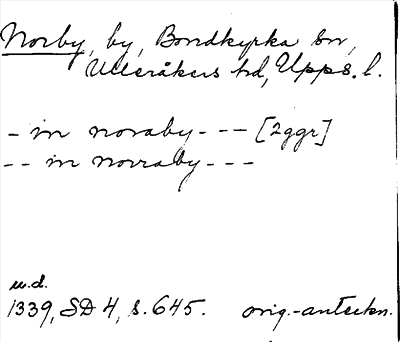 Norby, by, Bondkyrka sn,
Ulleråkers hd, Upps. l.
- in noraby - - - [2ggr]
- - in norraby - - -
u.d.
1339, SD 4, s. 645. orig.-anteckn.